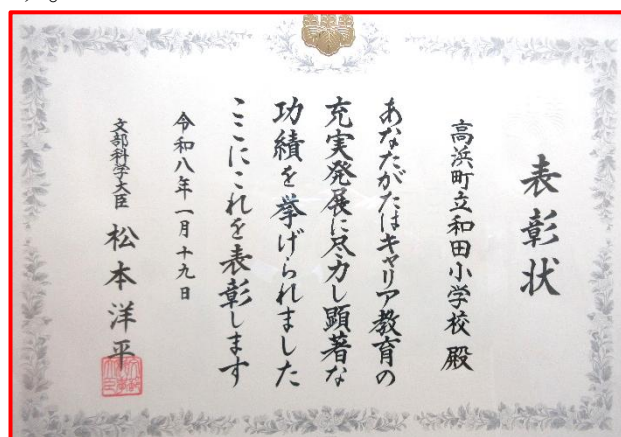 表彰状
高浜町立和田小学校 殿
あなたがたはキャリア教育の
充実発展に尽力し顕著な
功績を挙げられました
ここにこれを表彰します
令和八年一月十九日
文部科学大臣 松本洋平